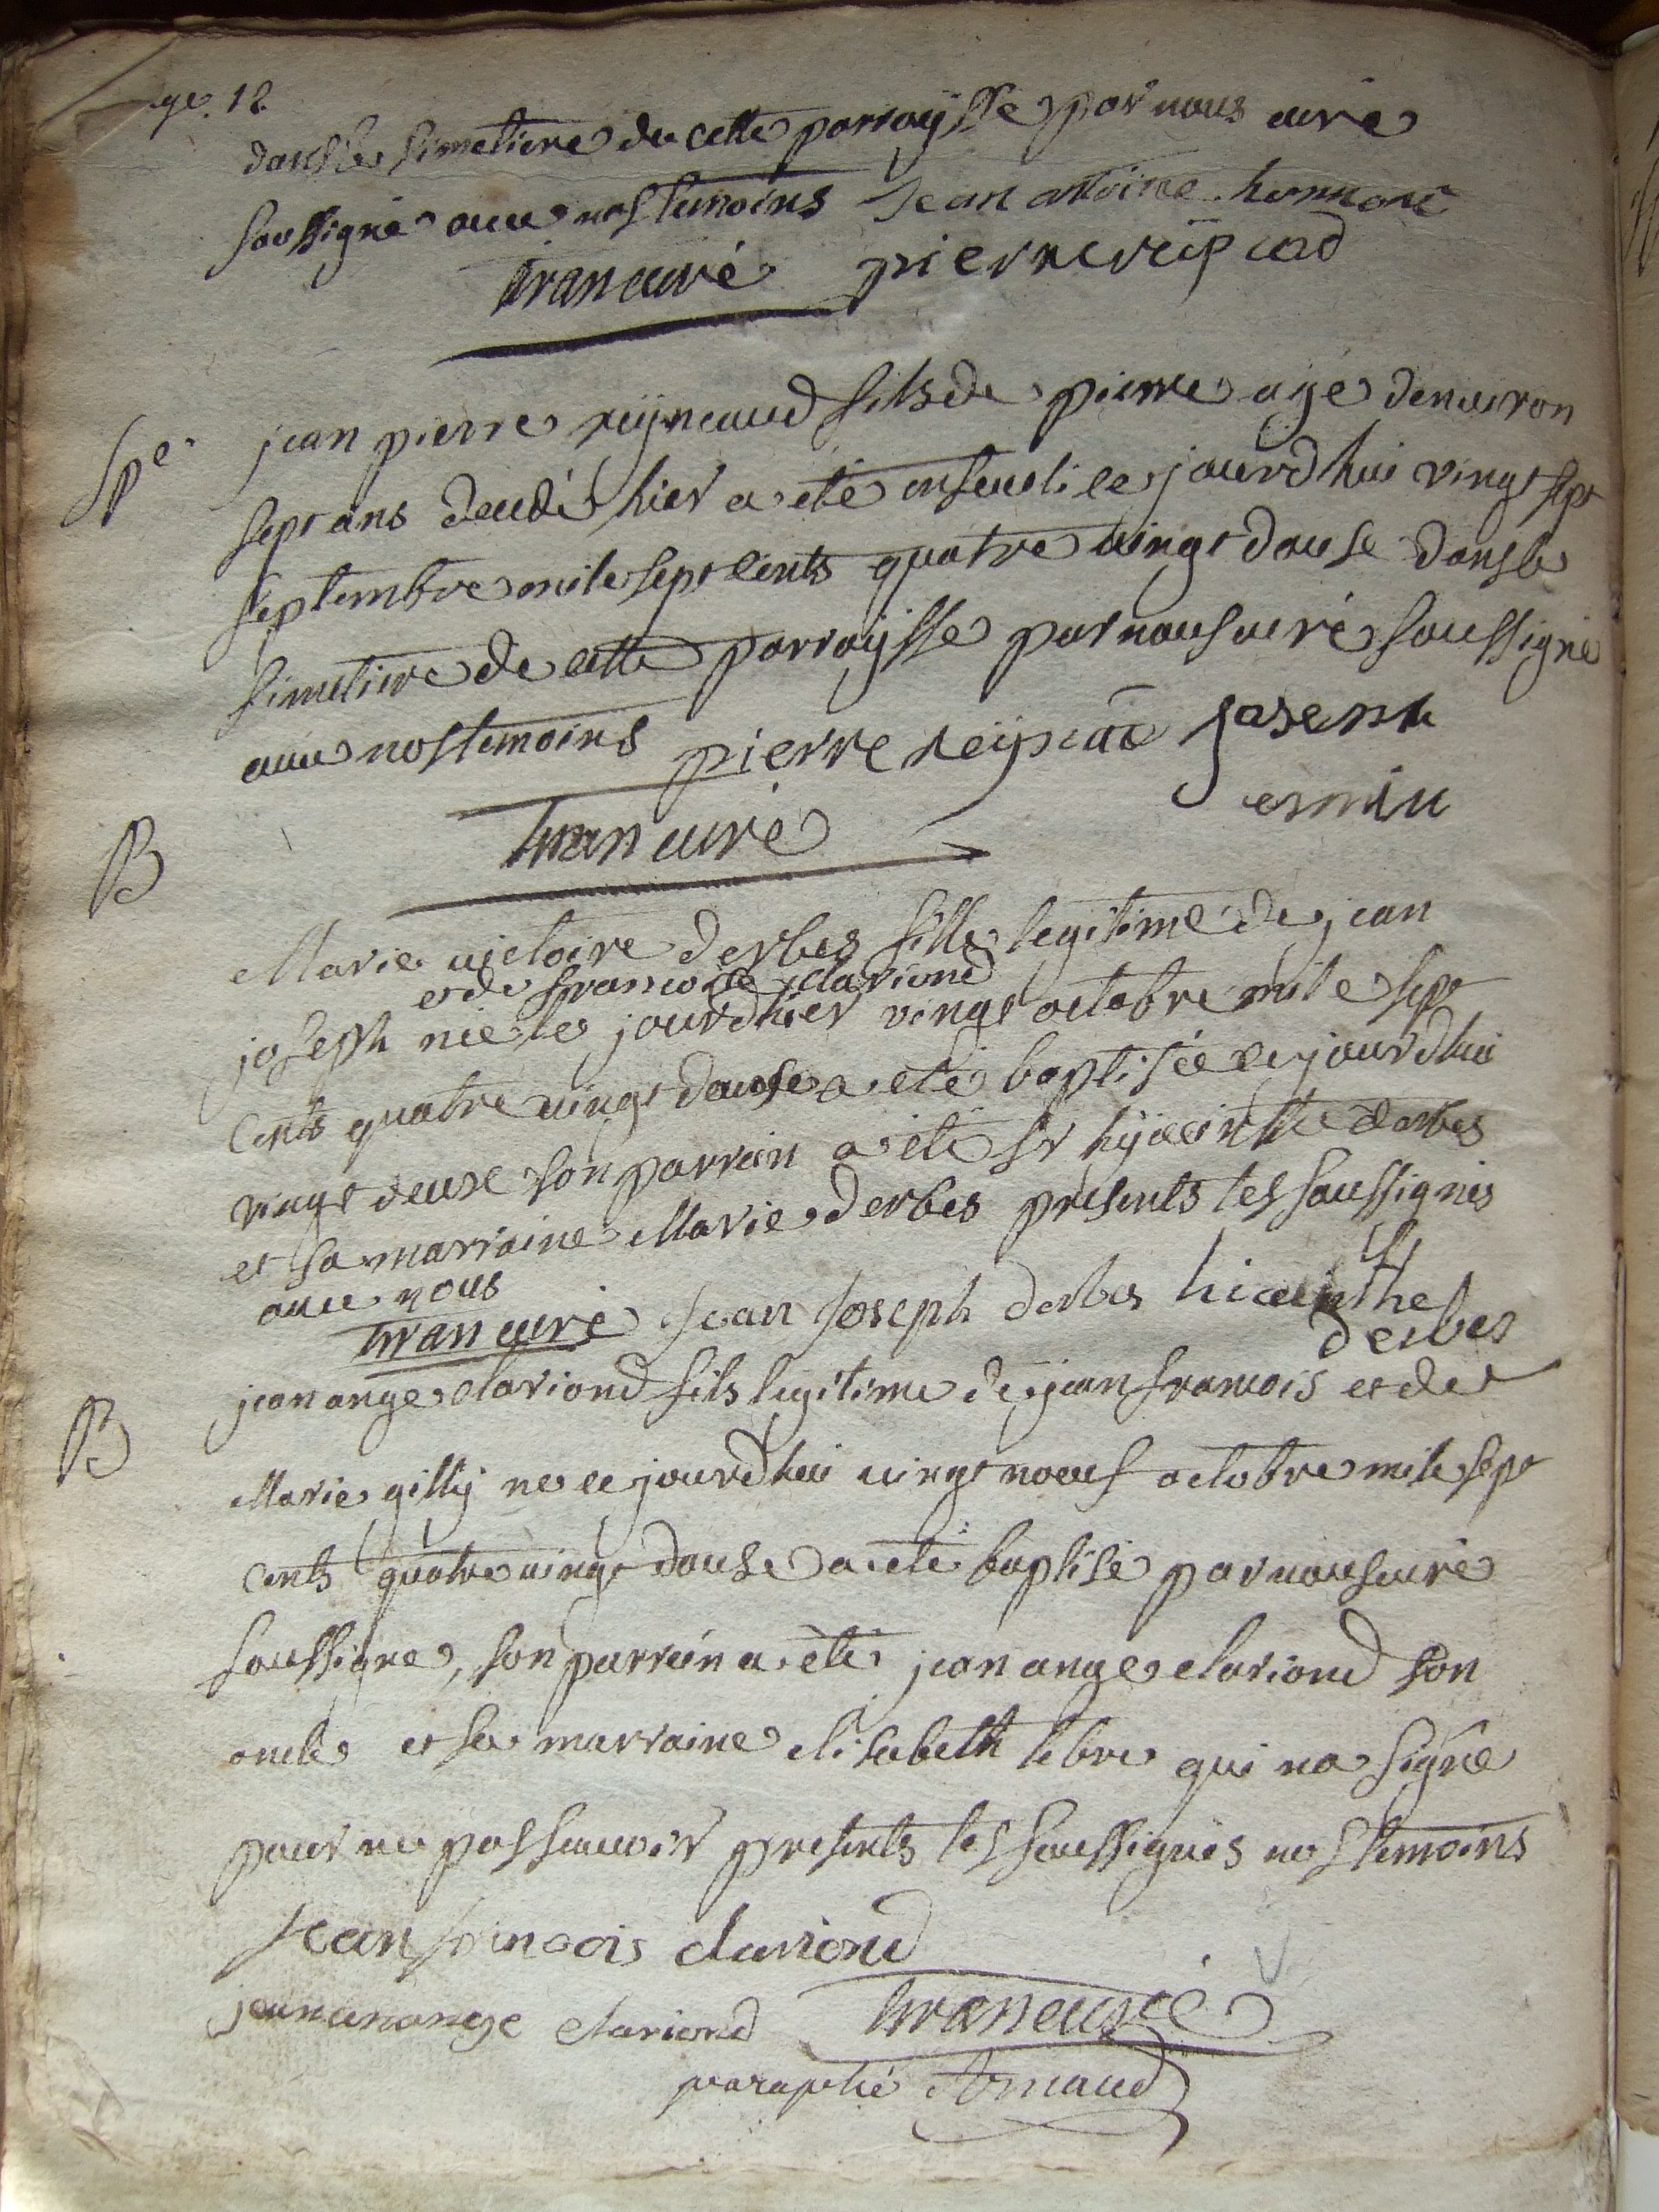 ge. 12
dans le simetiere de cette parroysse par nous curé
soussigné avec nos temoins Jean antoine honnorе
curé pierre
Spe. jean pierre reyneaud fils de pierre agé denviron
sept ans decedé hier a eté enseveli ce jourdhui vingt sept
septembre mile sept cents quatre vingt douse dans le
simetiere de cette parroysse par nous curé soussigné
avec nos temoins pierre
curé
B
Marie victoire derbes fille legitime de jean
et de francoise clariond
joseph née le jourdhier vingt octobre mile sept
Cents quatre vingt douse a eté baptisée ce jourdhui
vingt deuxe son parrain a eté sr hyacinthe derbes
et sa marraine Marie derbes présents les soussignés
avec nous
curé Jean Joseph derbes hiacinthe
derbes
B jean ange clariond fils legitime de jean francois et de
Marie gilly ne ce jourdhui vingt noeuf octobre mile sept
Cents quatre vingt douse a eté baptisé par nous curé
soussigne, son parrain a été jean ange clariond son
oncle et sa marraine elisabeth lebre qui na signé
pour ne pas scavoir presents les soussignés nos temoins
Jean francois clariond
jean ange clariond curé
paraphé Arnaud